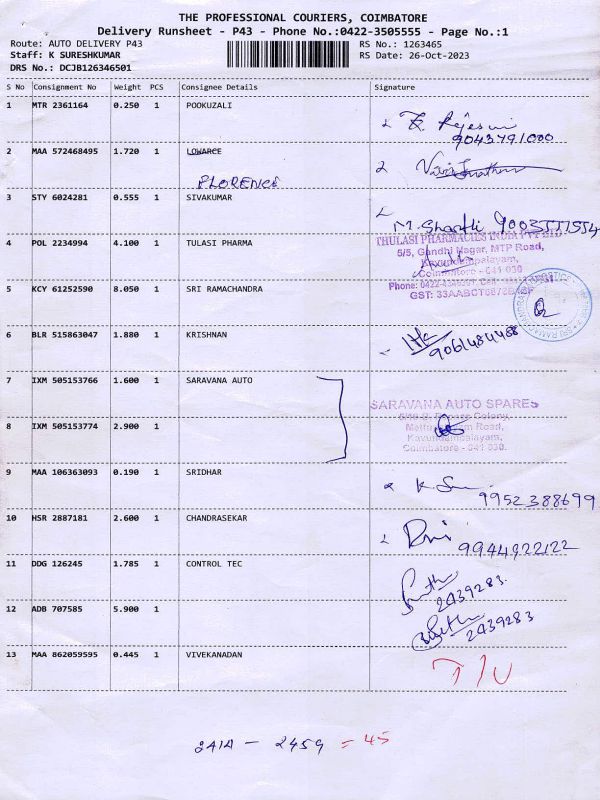 THE PROFESSIONAL COURIERS, COIMBATORE
Delivery Runsheet - P43 - Phone No.:0422-3505555 - Page No.:1
Route: AUTO DELIVERY P43 RS No.: 1263465
Staff: K SURESHKUMAR RS Date: 26-Oct-2023
DRS No.: DCJB126346501
S No Consignment No Weight PCS Consignee Details Signature
1 MTR 2361164 0.250 1 POOKUZALI
9043791000
2 MAA 572468495 1.720 1 LOWARCE
FLORENCE
3 STY 6024281 0.555 1 SIVAKUMAR
M. Shanthi
4 POL 2234994 4.100 1 TULASI PHARMA
THULASI PHARMACIES INDIA PVT LTD
5/5, Gandhi Nagar, MTP Road,
Kavundampalayam,
Coimbatore - 641 030
5 KCY 61252590 8.050 1 SRI RAMACHANDRA
6 BLR 515863047 1.880 1 KRISHNAN
9061484488
7 IXM 505153766 1.600 1 SARAVANA AUTO
SARAVANA AUTO SPARES
8 IXM 505153774 2.900 1
Kavundampalayam,
Coimbatore - 641 030.
9 MAA 106363093 0.190 1 SRIDHAR
9952388699
10 HSR 2887181 2.600 1 CHANDRASEKAR
9944922122
11 DDG 126245 1.785 1 CONTROL TEC
2439283
12 ADB 707585 5.900 1
2439283
13 MAA 862059595 0.445 1 VIVEKANADAN
2414 - 2459 = 45